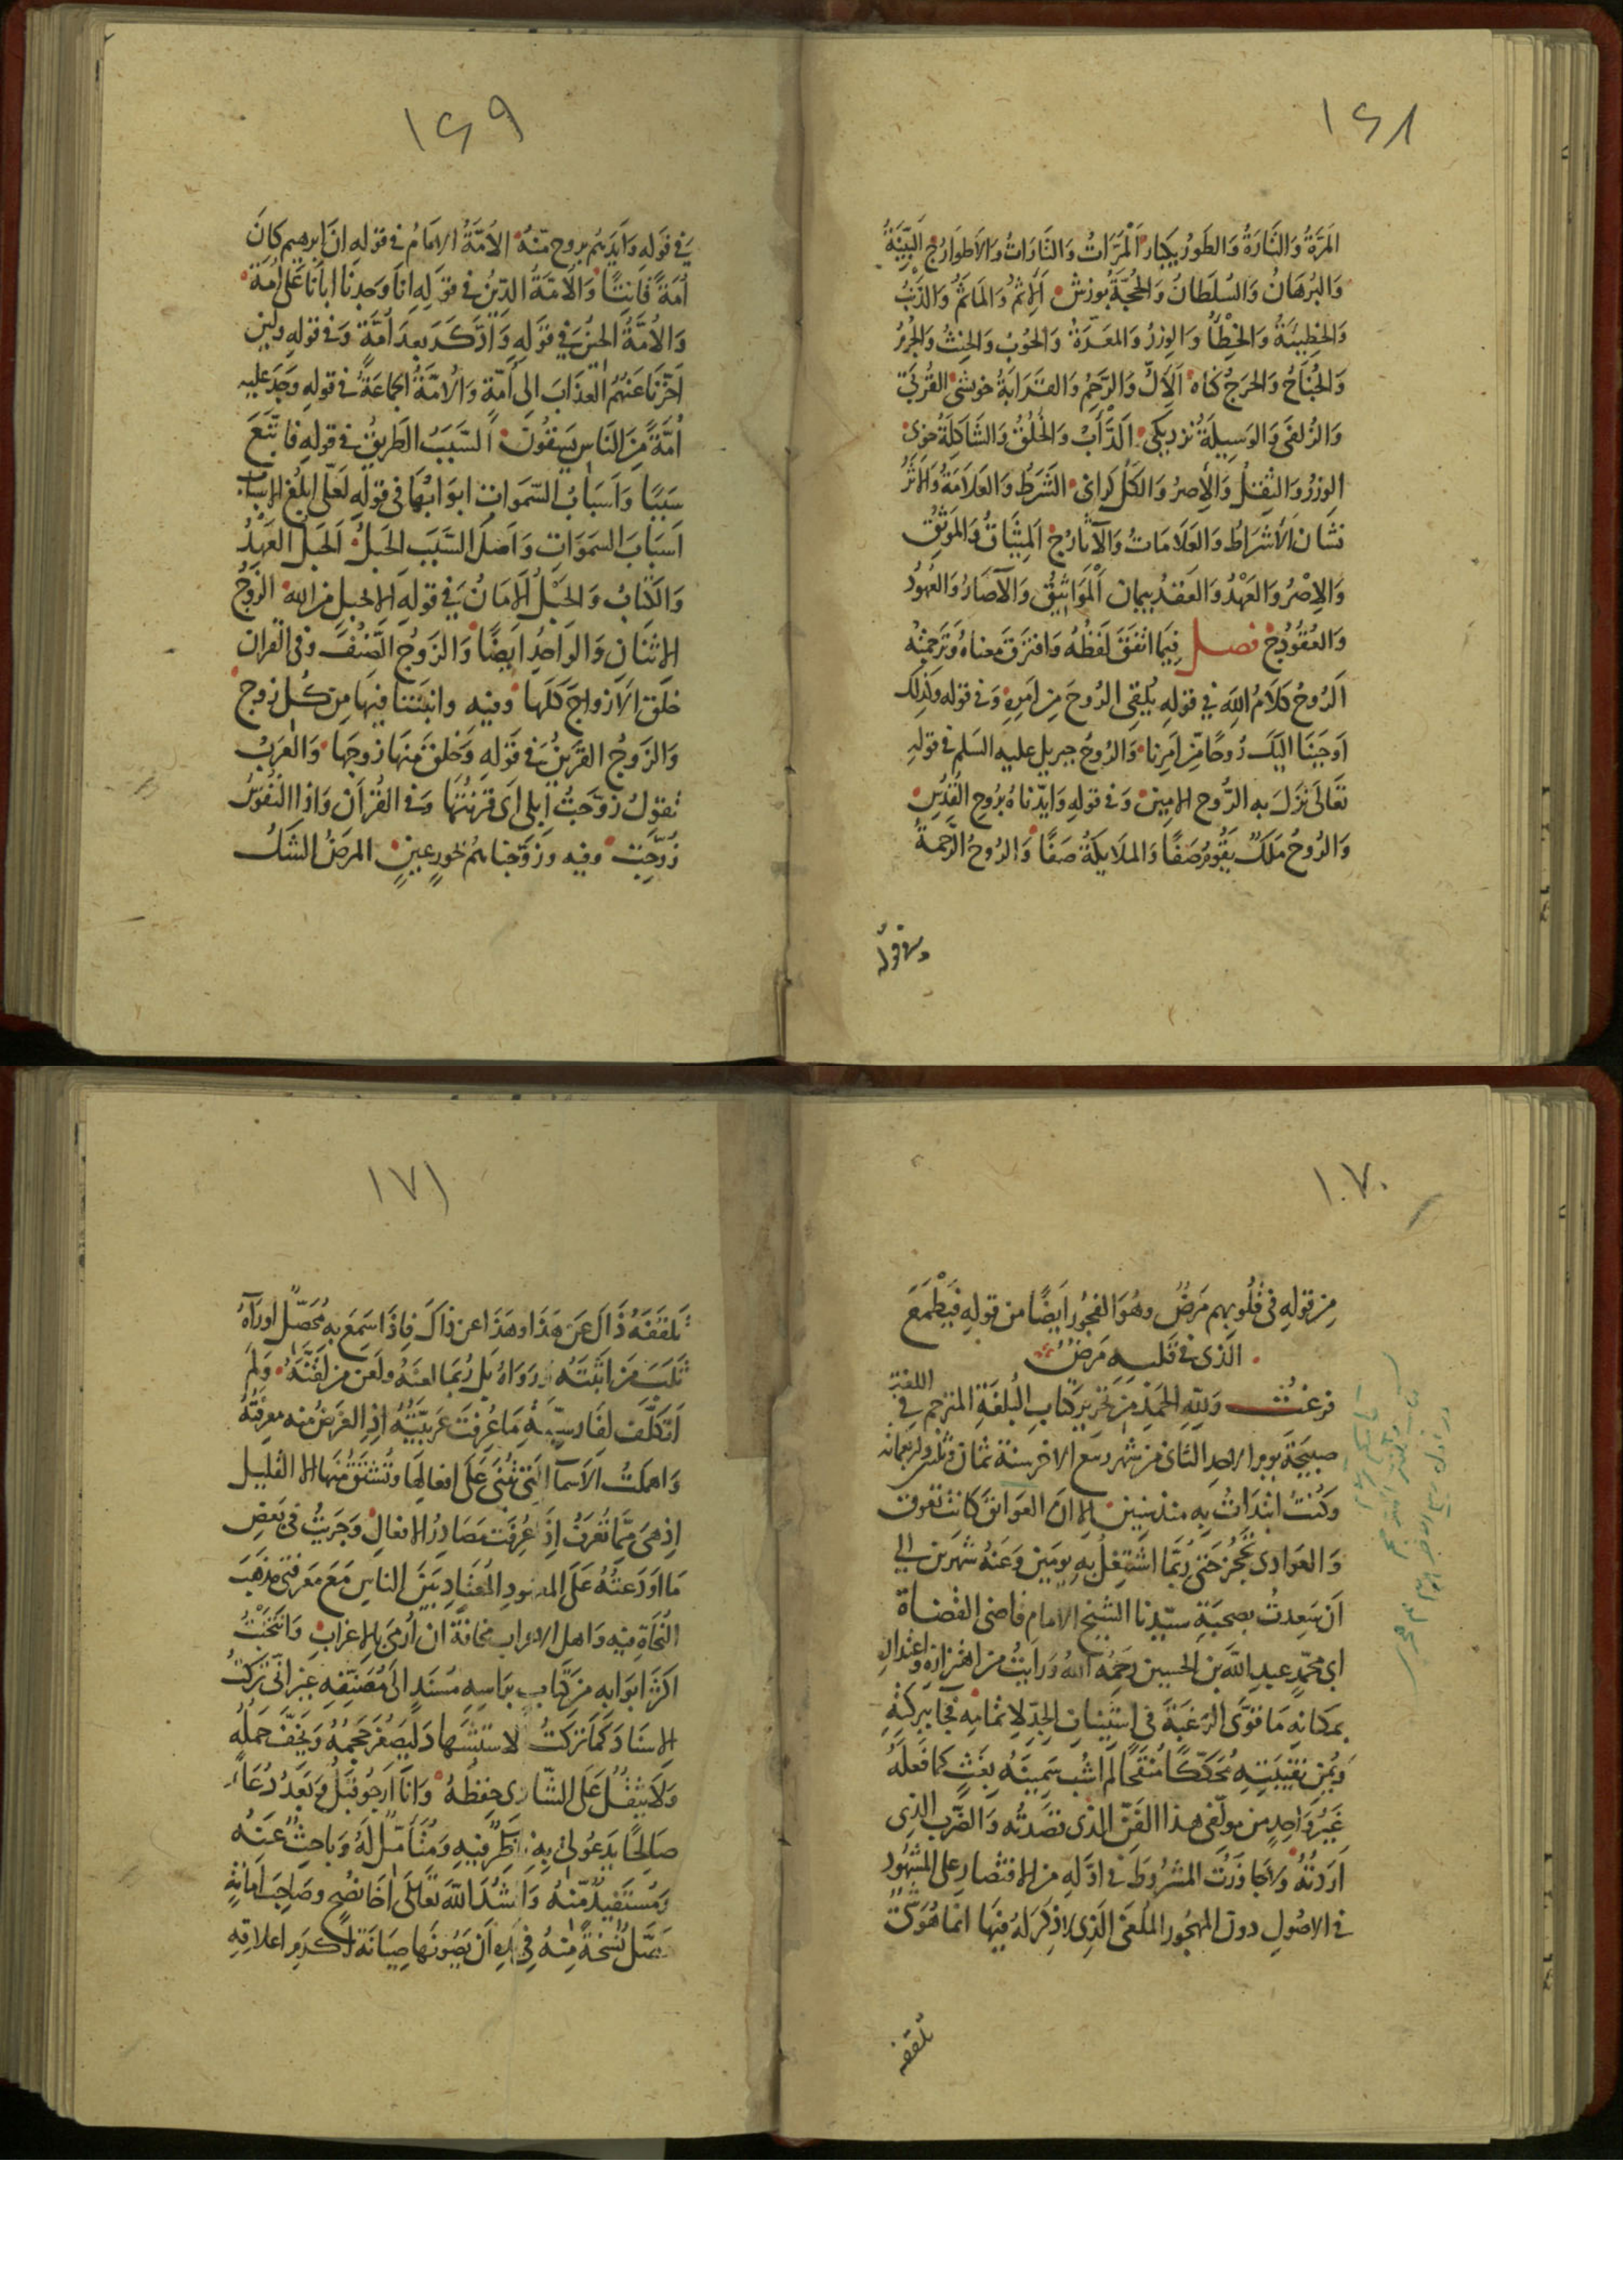 ١٤٨
المَرَّةُ وَالتَّارَةُ وَالطَوْرُ يكبار المَرَّاتُ وَالتَّارَاتُ وَالأَطوَارُ ج البَيِّنَةُ
وَالبُرْهَانُ وَالسُلطَانُ وَالحُجَّةُ بوزش الإثمُ وَالمَاثَمُ وَالذَنْبُ
وَالخَطِيئَةُ وَالخِطْأُ وَالوِزرُ وَالمَعَرَّةُ وَالحُوْبُ وَالحِنثُ وَالجُرمُ
وَالجُنَاحُ وَالحَرَجُ كناه الإلُّ وَالرَّحِمُ وَالقَرَابَةُ خويشى القُربَى
وَالزُلفَى وَالوَسِيلَةُ نزديكى الدَّأْبُ وَالخُلُقُ وَالشَاكِلَةُ خوى
الوِزرُ وَالثِقلُ وَالأِصرُ وَالكَلُّ كرانى الشَرَطُ وَالعَلَامَةُ وَالأَثَرُ
نشان الأَشرَاطُ وَالعَلَامَاتُ وَالآثَارُ ج المِيثَاقُ وَالمَوثِقُ
وَالإِصْرُ وَالعَهْدُ وَالعَقدُ پيمان المَوَاثِيقُ وَالآصَارُ وَالعُهُودُ
وَالعُقُودُ ج فصل فِيمَا اتَّفَقَ لَفظُهُ وَافتَرَقَ معناهُ وَتَرجَمَتُه
الرُوحُ كَلَامُ اللهِ في قولِهِ يُلقِى الرُوحَ مِن اَمرِهِ وَفى قوله وكَذلِكَ
اَوحَينَا اليَكَ رُوحًا مِن اَمرِنا وَالرُوحُ جبريل عليه السَلم في قولِهِ
تَعَالَى نَزَلَ به الرُّوح الامين وَفى قولِهِ وَايّدنَاهُ بِرُوحِ القُدُسِ
وَالرُوحُ مَلَكٌ يَقُومُ صَفًا وَالملَايكَةُ صَفًا وَالرُوحُ الرَّحمَةُ
وفى قوله
١٤٩
فى قَولِهِ وَايَدَهُم بروح مّنهُ الأُمَّةُ الامَامُ فى قوله اِنَّ ابرهيم كانَ
اُمّةً قَانِتًا وَالأُمَّةُ الدّينُ في قَولِهِ اِنَّا وَجدنَا ابآنَا عَلَى اُمّةٍ
وَالأُمَّةُ الحِينُ فى قَولِهِ وَادَّكَرَ بَعدَ اُمَّةٍ وَفى قولِهِ ولَئِن
اَخَّرنَا عَنهُمُ العَذَابَ الى اُمّةٍ وَالأُمَّةُ الجَماعَةُ فى قولِهِ وَجَدَ عليهِ
اُمَّةً مِنَ النَاسِ يَسقُونَ السَّبَبُ الطَريقُ فى قولِهِ فَاتّبَعَ
سَبَبًا وَاَسبَابُ السّمَواتِ ابوَابُهَا فى قولِهِ لَعَلّى ابلُغ الاسبَابَ
اَسبَابَ السمَوَاتِ وَاَصلُ السَّبَبِ الحَبلُ الحَبلُ العَهدُ
وَالكِتابُ وَالحَبْلُ الأَمَانُ فى قولِهِ الا بحبلٍ من اللهِ الزَوجُ
الاثنَانِ وَالوَاحِدُ ايضًا وَالزَوجُ الصِّنفُ وفى القران
خلَقَ الأَزواجَ كلّهَا وفيه وانبَتنا فيهَا مِن كُل زوج
وَالزَوجُ القَرينُ فى قولِهِ وَخَلقَ مِنهَا زوجَهَا وَالعَرَبُ
تقولُ زوّجتُ اِبلِى اَى قرَنتُهَا وَفى القُرآن وَاِذا النُفُوسُ
زُوّجَت وفيه وزوَّجنَاهُم بحُورٍ عِينٍ المرَضُ الشكُ
١٧٠
مِن قولِهِ فى قُلُوبِهِم مَرَضٌ وهُوَ الفجُورُ ايضًا من قولِهِ فَيَطْمَعَ
الَّذى فى قَلبِهِ مَرَضٌ
فرغتُ وَللهِ الحَمدُ مِن تَحريرِ كتابِ البُلغَةِ المترجم فى اللغة
صبيحَةَ يوم الاحدِ الثانى من شهر ربيع الاخر سنة ثمان وثلثين واربعمائه
وكنتُ ابتدَأتُ بِهِ منذ سنين الا انّ العوَائقَ كانَت تعُوق
وَالعوَادى تحجُز حَتى رُبّمَا اشتَغِلُ بِهِ يومَين وَعَنهُ شَهرَين الى
اَن سَعِدتُ بصحبَةِ سيّدِنا الشيخ الامام قاضى القضاة
ابى محمّدٍ عبدِ اللهِ بن الحسين رَحِمَهُ اللهُ وَرايتُ مِن اهتزازِهِ واعتدالِ
بمكانِهِ مَا قوَّى الرَغبَةَ فى الجِدّ لِاتمامِهِ فجا ببركتِهِ
وَيُمنِ نقيبَتِهِ مُحكّكًا مُنقّحًا لم اشُب سَمِينَهُ بغَثٍ كما فَعلَهُ
غيرُ وَاحِدٍ من مولّفى هذا الفَنّ الذى قصَدتُه وَالضّربِ الذى
اَرَدتُهُ وَلا جَاوَزتُ المشرُوطَ فى اوّلِهِ من الاقتصار على المشهُور
فى الاصُولِ دون المهجُور الملغى الَذِى لا ذكرَ لَهُ فيهَا انما هُوَ شئ
تلقفه
١٧١
تلقفَهُ ذَاكَ عَن هَذَا وهَذَا عن ذاكَ فاِذَا سَمِعَ بهِ مُحَصّلٌ اورَآهُ
ثَلَبَ مَن اثبَتَهُ ورَوَاهُ بل رُبمَا لعَنَهُ ولعَن مَن لَقَّنَهُ وَلَم
اَتكلَّف لفارسيّةِ مَا عُرِفَت عَربيّتُهُ اِذِ الغَرَضُ منه معرفَتُهُ
وَاهمَلتُ الأَسمآ الّتى تُبنَى عَلَى افعالِهَا وتُشتَقُ منهَا الا القليل
اِذ هِىَ مِمّا تُعرَفُ اِذَا عُرِفَت مَصَادِرُ الافعالِ وَجَرَيتُ فى بَعضِ
مَا اَودَعتُهُ عَلَى المعهُودِ المعتَادِ بَينَ الناسِ مَعَ مَعرفتى مذهَبَ
النُحَاةِ فيه وَاهل الاعراب مخافَةَ ان اُرمَى بالاغرَابِ وَانتَخبتُ
اكثرَ ابوابه من كتابٍ برَاسِهِ مُسنَدٍ الى مُصَنّفِهِ غير انّى تَركتُ
الاسنادَ كَما تَركتُ الاستشهادَ ليَصغُرَ حَجمُهُ وَيخفّ حَملُه
وَلا يثقُلَ عَلَى الشّادِى حِفظُهُ وَانَا اَرجُو قبلُ وَبَعدُ دُعَاءً
صَالحًا يَدعُو لى بهِ ناظِرٌ فيهِ وَمُتَأمّلٌ لَهُ وَبَاحِثٌ عَنهُ
وَمُستَفيدٌ مّنهُ وَانشُدُ اللهَ تَعَالَى اخَا نُصحٍ وصَاحِبَ امَانةٍ
نُسخَةً مِنهُ فى اَن يَصُونَها صِيَانَة اكرمِ اعلاقِهِ